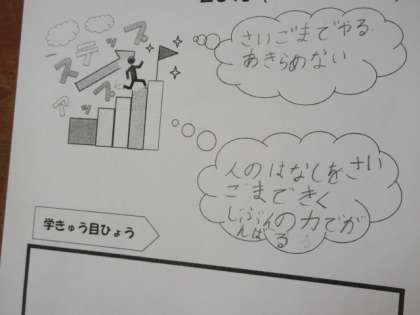 ステップ
アップ
さいごまでやる
あきらめない
人のはなしをさい
ごまできく
じぶんの力でが
んばる
学きゅう目ひょう